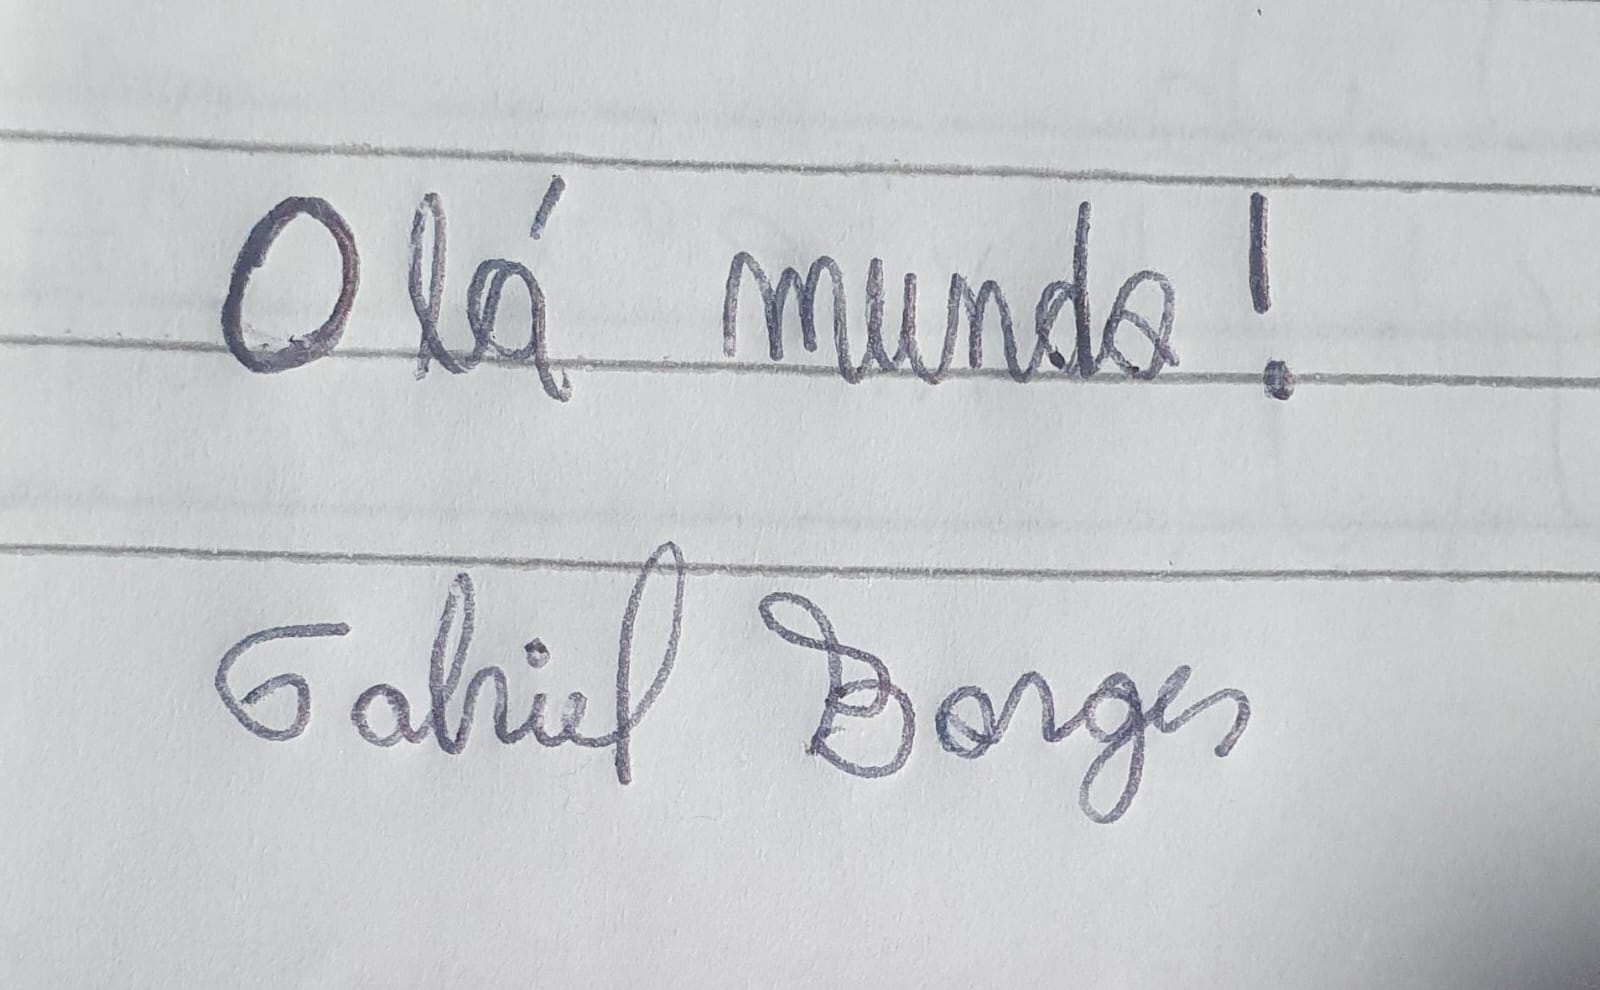 Olá mundo!
Gabriel Borges